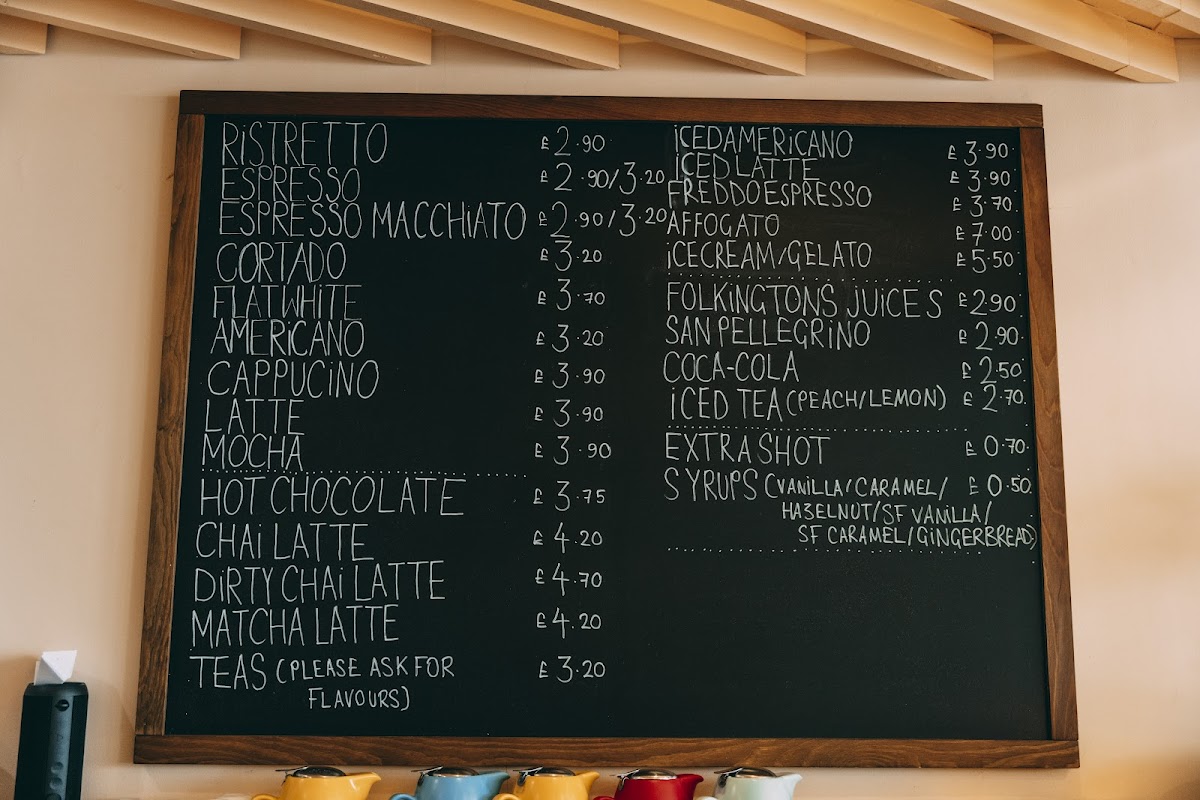 RISTRETTO £2.90
ESPRESSO £2.90/3.20
ESPRESSO MACCHIATO £2.90/3.20
CORTADO £3.20
FLATWHITE £3.70
AMERICANO £3.20
CAPPUCINO £3.90
LATTE £3.90
MOCHA £3.90
HOT CHOCOLATE £3.75
CHAI LATTE £4.20
DIRTY CHAI LATTE £4.70
MATCHA LATTE £4.20
TEAS (PLEASE ASK FOR £3.20
FLAVOURS)
ICED AMERICANO £3.90
ICED LATTE £3.90
FREDDO ESPRESSO £3.70
AFFOGATO £7.00
ICECREAM/GELATO £5.50
FOLKINGTONS JUICES £2.90
SAN PELLEGRINO £2.90
COCA-COLA £2.50
ICED TEA (PEACH/LEMON) £2.70
EXTRA SHOT £0.70
SYRUPS (VANILLA/CARAMEL/ £0.50
HAZELNUT/SF VANILLA/
SF CARAMEL/GINGERBREAD)